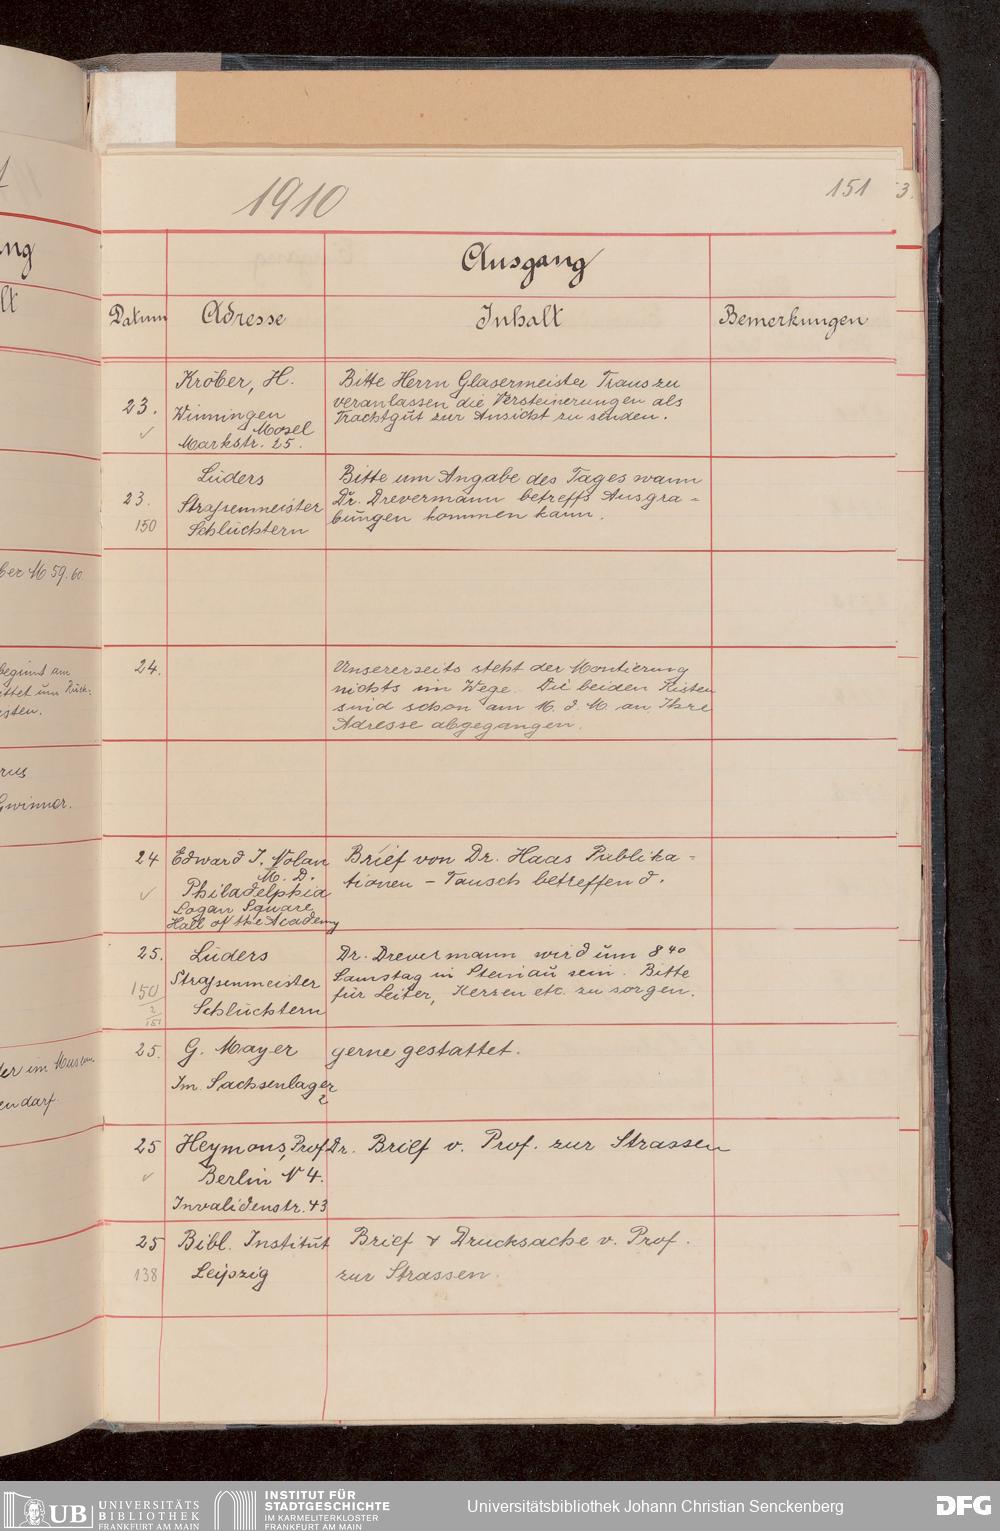 1910
151
3.
Ausgang
Datum Adresse Inhalt Bemerkungen
Kröber, H. Bitte Herrn Glasermeister Traus zu
23. Winningen veranlassen die Versteinerungen als
Mosel Frachtgut zur Ansicht zu senden.
Markstr. 25.
Lüders Bitte um Angabe des Tages wann
23. Strassenmeister Dr. Drevermann betreffs Ausgra=
150 Schlüchtern bungen kommen kann.
24. Unsererseits steht der Montierung
nichts im Wege. Die beiden Kisten
sind schon am 16. d. M. an Ihre
Adresse abgegangen.
24 Edward J. Nolan Brief von Dr. Haas Publika=
M. D. tionen - Tausch betreffend.
Philadelphia
Logan Square
Hall of the Academy
25. Lüders Dr. Drevermann wird um 8 40
150 Strassenmeister Samstag in Steinau sein. Bitte
2/151 Schlüchtern für Leiter, Kerzen etc. zu sorgen.
25. G. Mayer gerne gestattet.
Im Sachsenlager
2
25 Heymons, Prof. Dr. Brief v. Prof. zur Strassen
Berlin N 4.
Invalidenstr. 43
25 Bibl. Institut Brief & Drucksache v. Prof.
138 Leipzig zur Strassen.
ng
lt
ber M 59.60
beginnt am
ittet um Rück-
isten.
rus
Gwinner.
der im Museum
en darf.
UB UNIVERSITÄTS
BIBLIOTHEK
FRANKFURT AM MAIN
INSTITUT FÜR
STADTGESCHICHTE
IM KARMELITERKLOSTER
FRANKFURT AM MAIN
Universitätsbibliothek Johann Christian Senckenberg
DFG